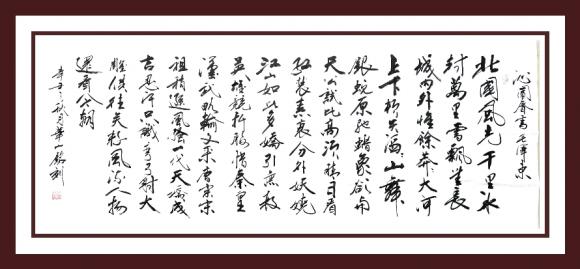 沁園春雪 毛澤東
北國風光千里冰
封萬里雪飄望長
城内外惟餘莽大河
上下頓失滔滔山舞
銀蛇原馳蠟象欲與
天公試比高須晴日看
紅裝素裹分外妖嬈
江山如此多嬌引無數
英雄競折腰惜秦皇
漢武略輸文采唐宗宋
祖稍遜風騷一代天驕成
吉思汗只識彎弓射大
雕俱往矣數風流人物
還看今朝
辛丑之秋月華山銘利